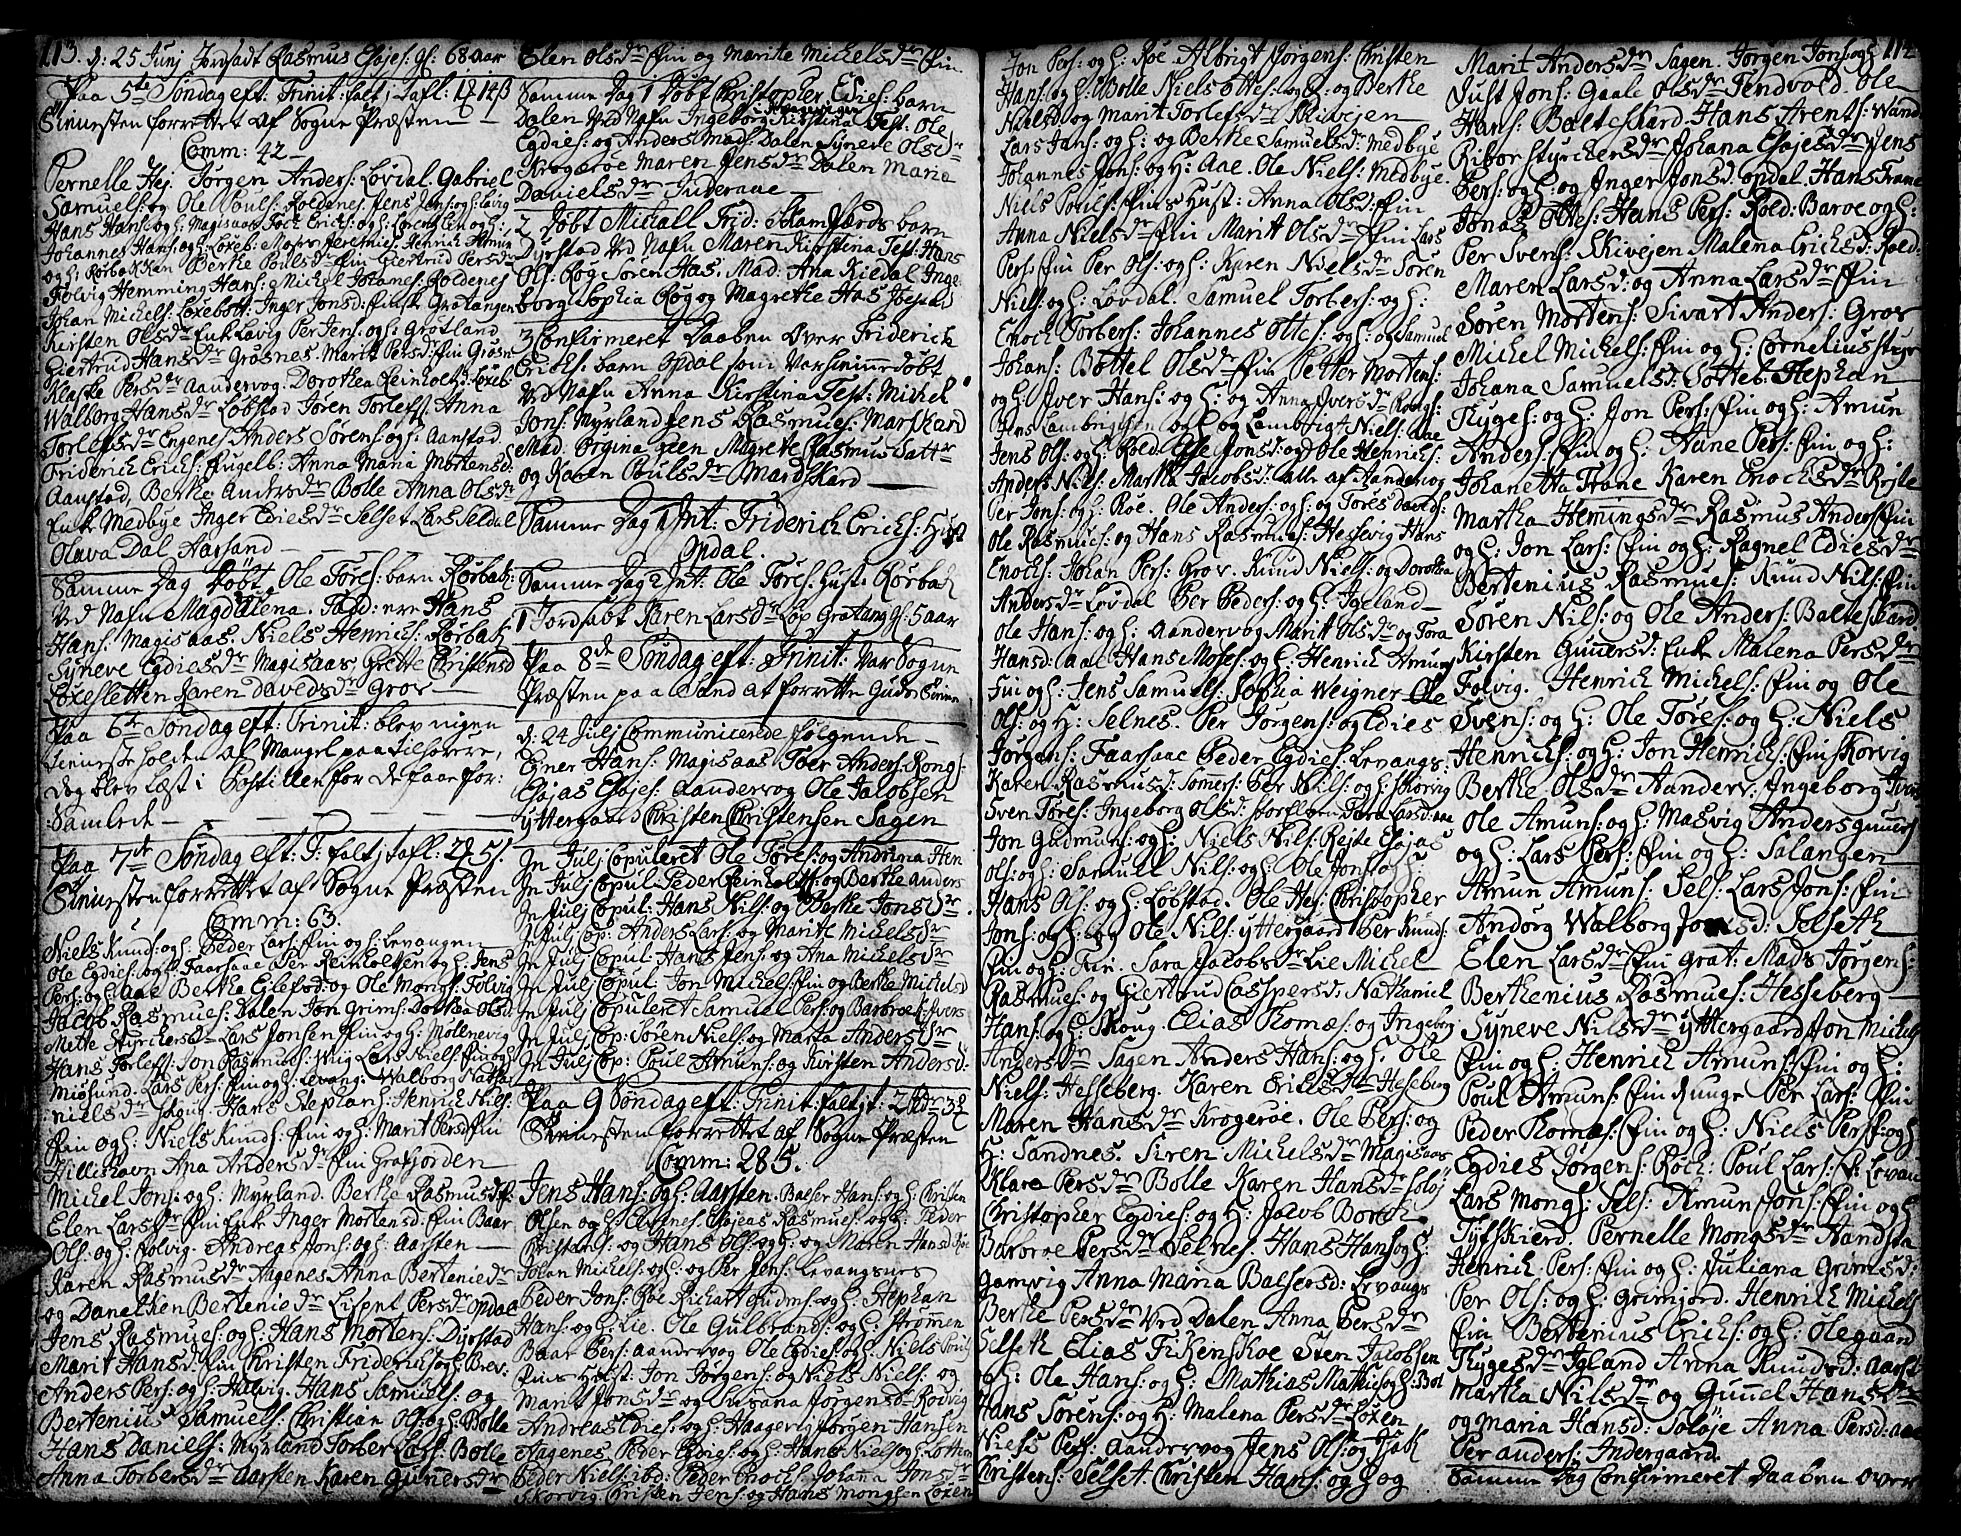 113. d: 25 Junj Jordsadt Rasmus Esajes: gl: 68 aar
Paa 5te Søndag eft: Trinit: faltj tafl: 1
Tienesten forrettet af Sogne Præsten
Comm: 42
Pernelle Hej. Jørgen Anders: Løvdal. Gabriel
Samuels: og Ole Pouls: Roldenes. Jens Lars: og h: Lavig
Hans Hans: og h: Magisaas
Johannes Hans: og h: Loxeb: Moses Jeremies. Henrich Amun
og h: Rørbak Kan Berthe Pouls dr fin Giertrud Pers dr
Folvig Hemming Hans: Michel Johanes: Roldenes
Johan Michels: Loxebott: Inger Jons d: fin Gratangen
Kirsten Ols dr Enk Lavig Per Jens: og h: Grotland
Giertrud Hans dr Grosnes. Marit Pers d: fin Grosn
Klaske Pers dr Aandervog. Dorothea Reinholts d: Loxeb
Walborg Hans dr Løbstad Søren Torlefs: Anna
Torlefs dr Engenes Anders Sørens: og h: Aanstad.
Friderich Erichs: Fugelb: Anna Maria Mortens d:
Aanstad, Berthe Anders dr Bolle Anna Ols dr
Enk Medbye Inger Edies dr Selset Lars Seldal
Olava Dal Aarsand
Samme Dag Døbt Ole Tøres: barn Rørbak:
Ved Nafn Magdalena. Fadd: ere Hans
Hans: Magisaas. Niels Henrichs: Rørbak
Syneve Egdies dr Magisaas Grethe Christens d
Loxesletten Karen Daveds dr Grov
Paa 6te Søndag eft: Trinit: blev ingen
Tieneste holden af Mangel paa tilhørere,
dog blev læst i Postillen for de faa for:
Samlede
Paa 7de Søndag eft: T: faltj tafl: 2
Tienesten forrettet af Sogne Præsten
Comm: 63.
Niels Knuds: og h: Peder Lars: fin og h: Levangen
Ole Egdies: og h: Faarsaae Per Reinholtsen og h: Jens
Pers: og h: Aae Berthe og Ole Mongs: Folvig
Jacob Rasmues: Dalen Jon Grims: Dorthea Ols d
Mette Styrchers d Lars Jonsen fin og h: Møllenevig
Hans Torlefs: Jon Rasmues: Wiig Lars Niels: fin og h
Miøsund. Lars Pers: fin og h: Levang: Walborg Natha
niels dr Hans Stephans: Henrich Niels:
fin og h: Niels Knuds: fin og h: Marit Pers d fin
Hillishavn Ana Anders dr fin Grafjorden
Michel Jons: og h: Myrland. Berthe Rasmus d fi:
Elen Lars dr fin Enk Inger Mortens d: fin Baar
Ols: og h: Folvig. Andreas Jons: og h: Aarsten
Karen Rasmus dr Aagenes Anna Bertenie dr
og Danethen Bertenie dr Pers dr Opdal
Jens Rasmues: og h: Hans Mortens: Dyrstad
Marit Hans d: fin Christen Friderichs: og h: Brev:
Anders Pers: og h: Halvig. Hans Samuels: og
Bertenius Samuels: Christian Ols: og h: Bolle
Hans Daniels: Myrland Torber Lars: Bolle
Anna Torbers dr Aarsten Karen Gunners dr
Elen Ols dr fin og Marite Michels dr fin
Samme Dag 1 Døbt Christopher Edies: barn
Dalen Ved Nafn Ingeborg Kirstina Test: Ole
Egdies: og Anders Mad: Dalen Syneve Ols dr
Krogeroe Maren Jens dr Dalen Maria
Daniels dr Inderaae
2 Døbt Michall Frid: barn
Dyrstad Ved Nafn Maren Kirstina Test: Hans
Ols: Rog Søren Has. Mad: Ana Kiedal Inge
borg Sophia Rog og Magrethe Has Ibestad
3 Confirmeret Daaben over Friderich
Erichs: barn Opdal som var hiemme døbt
Ved Nafn Anna Kirstina Test: Michel
Jons: Myrland Jens Rasmues: Marskard
Mad: Orgina Magrete Rasmus datr
og Karen Pouls dr Mardskard
Samme Dag 1 Int: Friderich Erichs: H:
Opdal.
Samme Dag 2 Int: Ole Tøres: Hust: Rørbak
1 Jordsadt Karen Lars dr Løp Gratang gl: 5 aar
Paa 8de Søndag eft: Trinit: Var Sogne
Præsten paa Sand at forrette Guds Tienes
d: 24 Julj Communicerede følgende
Einer Hans: Magisaas Toer Anders: Kong:
Esajas Esajes: Aandervog Ole Jacobsen
Yttergaard Christen Christensen Sagen
In Julj Copuleret Ole Tøres: og Andrina Hen
In Julj Copul: Peder Reinholts: og Berthe Anders
In Julj Copul: Hans Niels: og Berthe Jons dr.
In Julj Cop: Anders Lars: og Marite Michels dr
In Julj Copul: Hans Jens: og Ana Michels dr
In Julj Copul: Jon Michels: fin og Berthe Michels d
In Julj Copuleret Samuel Pers: og Barbroe Ivers
In Julj Cop: Søren Niels: og Marta Anders dr
In Julj Cop: Poul Amuns: og Kirsten Anders d:
Paa 9 Søndag eft: Trinit: faltj t: 2
Tienesten forrettet af Sogne Præsten
Comm: 285.
Jens Hans: og h: Aarsten. Balser Hans: og h: Christen
Olsen og h: Engenes Esajas Rasmues: og h: Peder
Christians: og Hans Ols: og h: og Maren Hans d Røe
Johan Michels: og h: og Per Jens: Levangsnes
Peder Jons: Røe Richart Gudms: og h: Stephan
Hans: og h: Lie. Ole Gulbrands: og h: Strømen
Baar Pers: Aandervog Ole Egdies: og h: Niels Pouls:
fins Hust: Jon Jørgens: og Niels Niels: og
Marit Jons dr og Susana Jørgens dr Rodvig
Andreas Edies: og h: Haagevig Jørgen Hansen
Aagenes Peder Edies: og h: Hans Niels: og h: Lothen
Peder Niels: ibd: Peder Enochs: Johana Jons dr
Skorvig. Christen Jens: og Hans Mongsen Loxen
Jon Pers: og h: Røe Albrigt Jørgens: Christen
Hans: og h: Bolle Niels Ottes: og h: og Berthe
Niels d og Marit Torlefs dr Skivejen
Lars Jans: og h: og Berthe Samuels dr Medbye
Johannes Jons: og h: Aae. Ole Niels: Medbye.
Niels Pouls: fins Hust: Anna Ols d: fin
Anna Niels dr fin Marit Ols dr fin Lars
Pers: fin Per Ols: og h: Karen Niels dr Søren
Niels: og h: Løvdal. Samuel Torbers: og h:
Enoch Torbers: Johannes Ottes: og h: og Samuel
Johans: Bottel Ols dr fin Petter Mortens:
og h: Iver Hans: og h: og Anna Ivers dr Kongs:
Jens Lambrigtsen og h: og Lambrigt Niels: Aae
Jens Ols: og h: Rold Else Jons d: og Ole Henrichs:
Anders Nils: Martha Jacobs d: alle af Aandervog
Per Jons: og h: Røe. Ole Anders: og h: og Tores David:
Ole Rasmues: og Hans Rasmues: Hessevig Hans
Enochs: Johan Pers: Grov. Knud Niels: og Dorothea
Anders dr Løvdal Per Peders: og h: Igeland
Ole Hans: og h: Aandervog Marit Ols dr og Tora
Hans d: Aae Hans Moses: og h: Henrich Amuns
fin og h: Jens Samuels: Sophia Weigner Ole
Ols: og h: Selnes. Per Jørgens: og Edies
Jørgens: Faarsaae Peder Egdies: Levangs:
Karen Rasmus d: Somers: Per Niels: og h: Skorvig
Sven Tøres: Ingeborg Ols d: Tora Lars d: aae
Jon Gudmuns: og h: Niels Nils: Rejste Esajas
Ols: og h: Samuell Nils: og h: Ole Jons: og h:
Hans Ols: og h: Løbstad. Ole Hej: Christopher
Jons: og h: og Ole Nils: Yttergaard Per Knuds:
fin og h: fin. Sara Jacobs dr Lie Michel
Rasmues: og Giertrud Caspers d: Nathaniel
Hans: og h: Skoug. Elias Thomæs: og Ingeborg
Anders dr Sagen Anders Hans: og h: Ole
Niels: Hesseberg. Karen Eriks dr Hesseberg
Maren Hans dr Krogerøe. Ole Pers: og
H: Sandnes. Siren Michels dr Magisaas
Klare Pers dr Bolle Karen Hans dr Soløj
Christopher Egdies: og h: Jacob Borch
Barbroe Pers dr Selnes. Hans Hans: og h:
Gamvig Anna Maria Balsers d: Levangs
Berthe Pers dr Ved Dalen Anna Pers dr
Selseth Elias Fikenskoe Sten Jacobsen
og h: Ole Hans: og h: Mathias Mathies: og h: Bol
Hans Sørens: og h: Malena Pers dr Loxen
Niels Pers: Aandervog Jens Ols: og Isak
Christens: Selset. Christen Hans: og h: og
114
Marit Anders dr Sagen. Jørgen Jons: og h:
Just Jons: Gaale Ols dr Tendvold. Ole
Hans: Balteskard. Hans Arents: Wand
Ribor Styrchers dr Johana Esajes dr Jens
Pers: og h: og Inger Jons d: Opdal. Hans Trane
Jonas Ottes: Hans Pers: Rold: Baroe og h:
Per Svens: Skivejen Malena Erichs d: Rold:
Maren Lars d: og Anna Lars dr fin
Søren Mortens: Sivart Anders: Grov
Michel Michels: fin og h: Cornelius Styr
Johana Samuels d: Botteb: Stephan
Thyges: og h: Jon Pers: fin og h: Amun
Anders: fin og h: Hane Pers: fin og h:
Johanetta Trane Karen Enochs dr Rejste
Martha Hemmings dr Rasmus Anders: fin
og h: Jon Lars: fin og h: Ragnel Edies dr
Bertenius Rasmues: Knud Nils: fin
Søren Nils: og Ole Anders: Balteskard
Kirsten Guners d: Enk Malena Pers dr
Folvig. Henrich Michels: fin og Ole
Svens: og h: Ole Tøres: og h: Niels
Henrichs: og h: Jon Henrichs: fin Skorvig
Berthe Ols dr Aanderv: Ingeborg Ivers
Ole Amuns: og h: Masvig Anders Guners
og h: Lars Pers: fin og h: Salangen
Amun Amuns: Sels: Lars Jons: fin
Andorg Walborg Jons d: Selseth
Elen Lars dr fin Grat: Mads Jørgens:
Berthenius Rasmues: Hesseberg
Syneve Nils dr Yttergaard Jon Michels
fin og h: Henrich Amuns: fin og h:
Poul Amuns: fin Kunge Per Lars: fin
Peder Thomæs: fin og h: Niels Pers: f: og h
Egdies Jørgens: Røch: Poul Lars: f: Levan
Lars Mongs: Sels: Amun Jons: fin og h
Tyfskierd. Pernelle Mongs dr Aandstad
Henrich Pers: fin og h: Juliana Grims d:
Per Ols: og h: Grimjord. Henrich Michels
fin Bertenius Erichs: og h: Olegaard
Thyges dr Igland Anna Knuds d: Aarst
Martha Nils dr og Gunnel Hans dr
og Maria Hans d: Soløje Anna Pers d: aae
Per Anders: Indergaard.
Samme Dag Confirmeret Daaben over